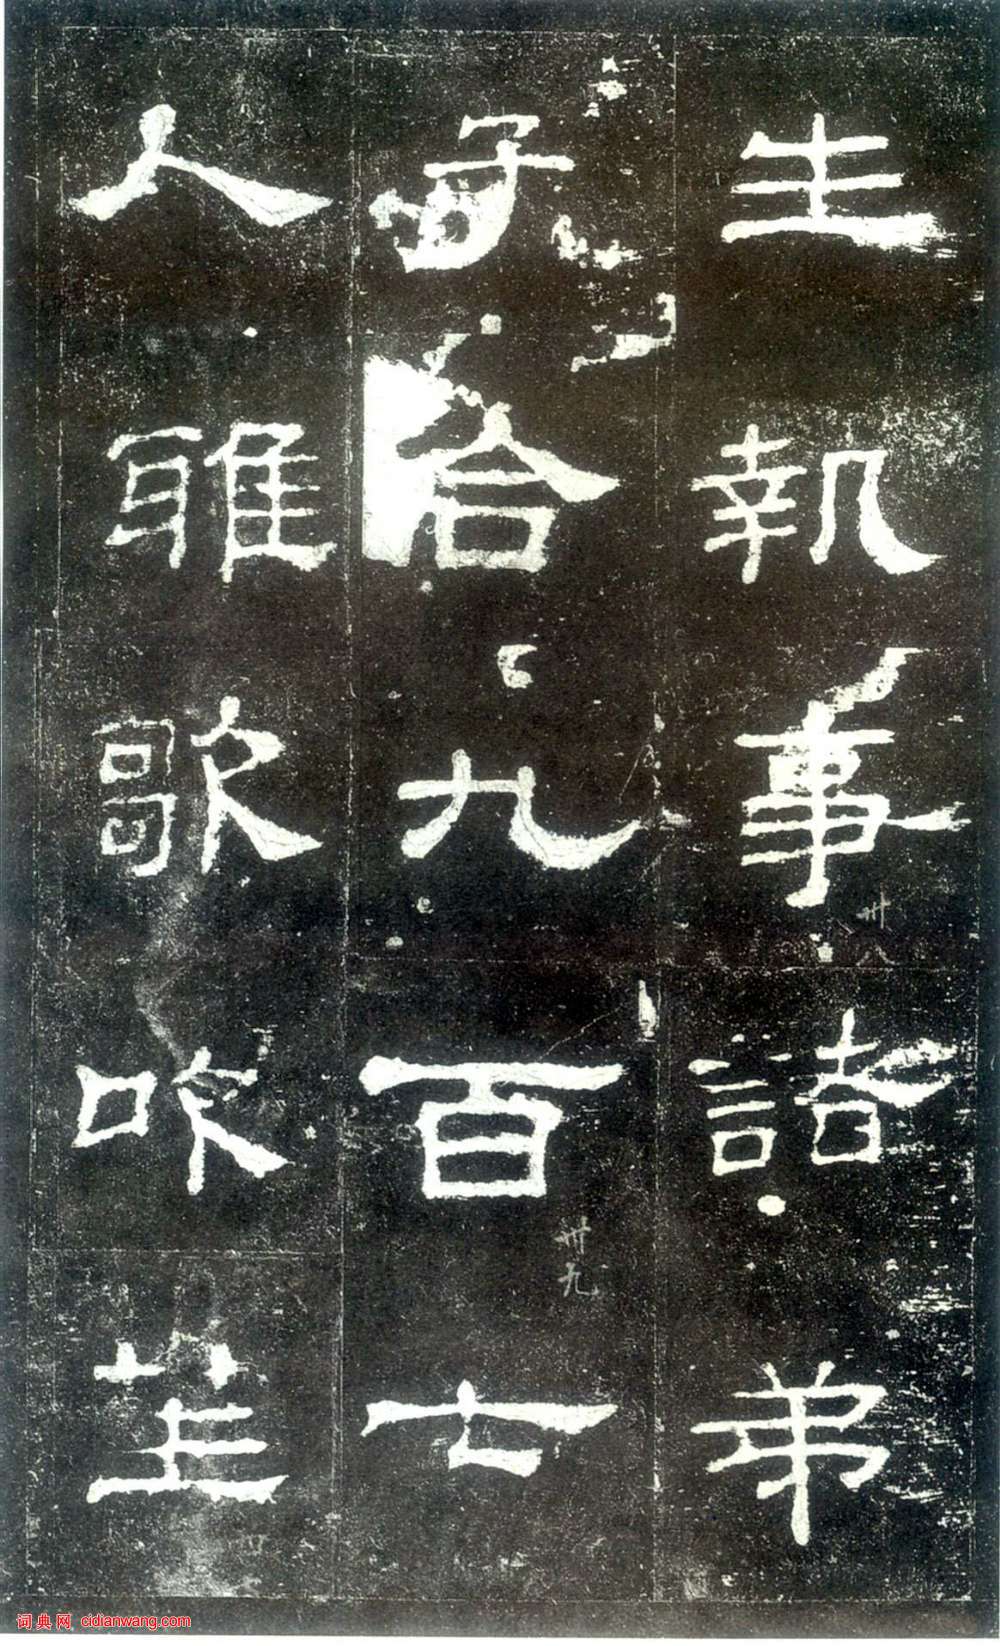 生執事諸弟
子合九百七
人雅歌吹笙
卅八
卅九
词典网 cidianwang.com